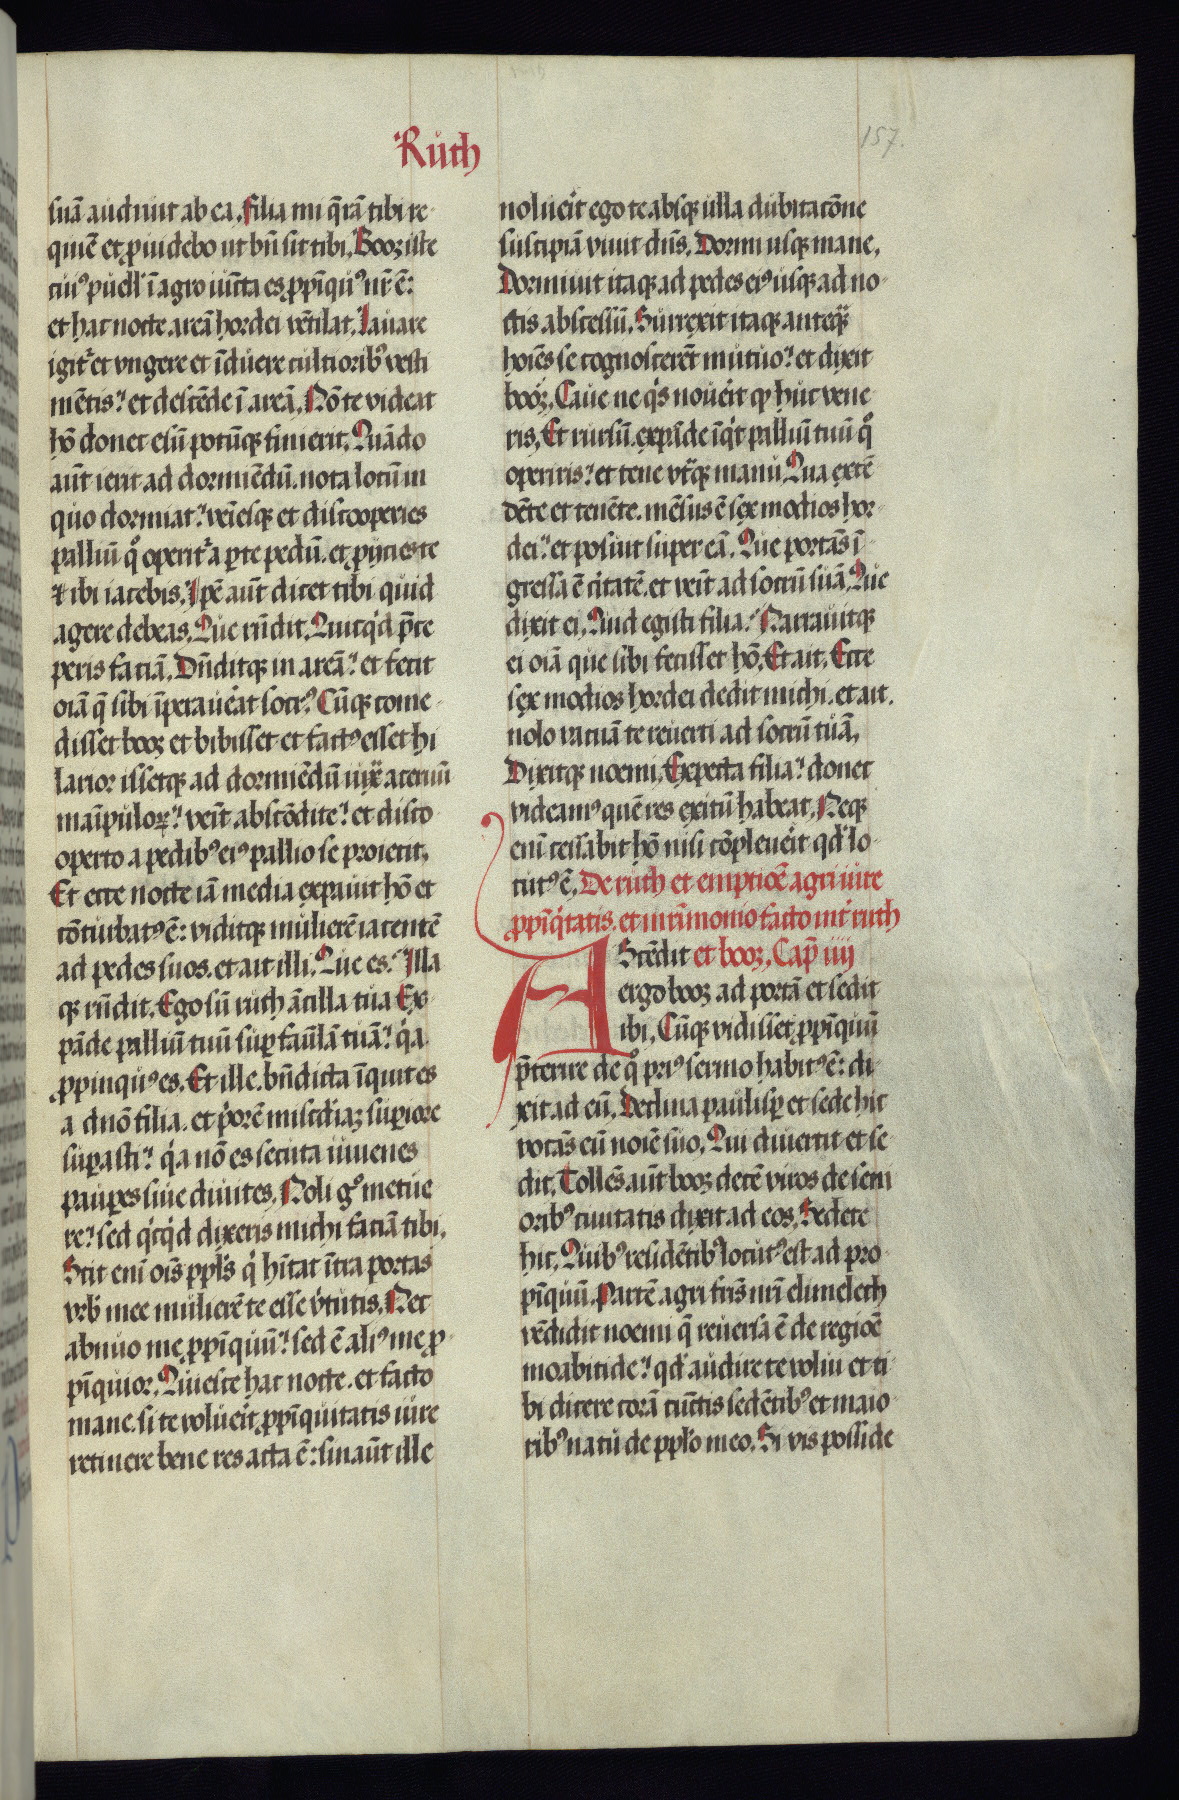 Ruth
157.
suā audiuit ab ea. filia mi q̄rā tibi re-
quiē et ꝓuidebo ut bn̄ sit tibi. Booz iste
cuiꝰ puell' ī agro iūcta es ꝓpīquꝰ nr̄ ē:
et hac nocte areā hordei vētilat. Lauare
igit᷑ et vngere et īduere cultioribꝰ vesti
mētis: et descēde ī areā. Nō te videat
hō donec esū potūqꝫ finierit. Quādo
aūt ierit ad dormiēdū. nota locū in
quo dormiat: veīesqꝫ et discooperies
palliū qͦ operit᷑ a ꝑte pedū. et ꝓijcies te
⁊ ibi iacebis. Ipē aūt dicet tibi quid
agere debeas. Que rn̄dit. Quicq'd p̄ce
peris faciā. Dn̄ditqꝫ in areā: et fecit
oīa q̄ sibi īperauēat socrꝰ. Cūqꝫ come-
disset booz et bibisset et factꝰ esset hi
larior issetqꝫ ad dormiēdū iuxͣ aceruū
maīpuloꝝ: veīt abscōdite: et disco
operto a pedibꝰ eiꝰ pallio se proiecit.
Et ecce nocte iā media expauit hō et
cōturbatꝰ ē: viditqꝫ mulierē iacentē
ad pedes suos. et ait illi. Que es: Illa
qꝫ rn̄dit. Ego sū ruth ācilla tua Ex-
pāde palliū tuū suꝑ famlā tuā: q'a
ꝓpinquꝰ es. Et ille. bn̄dicta īquit es
a dn̄o filia. et p'orē miscd'iaꝫ suꝑiore
suꝑasti: q'a nō es secuta iuuenes
pauꝑes siue diuites. Noli gͦ metue
re: sed q'cq'd dixeris michi faciā tibi.
Scit enī oīs ppl's q' hītat īt͛a portas
vrb' mee mulierē te esse v'tutis. Nec
abnuo me ꝓpīquū: sed ē aliꝰ me ꝓ-
pīquior. Quiesce hac nocte. et facto
mane. si te voluēit ꝓpīquitatis iure
retinere bene res acta ē: sin aūt ille
noluēit ego te absqꝫ ulla dubitacōne
suscipiā viuit dn̄s. Dormi usqꝫ mane.
Dormiuit itaqꝫ ad pedes eiꝰ usqꝫ ad no-
ctis abscessū. Surrexit itaqꝫ anteqͣꝫ
hoīes se cognoscerēt mutuo: et dixit
booz. Caue ne q's nouēit qꝫ huc vene
ris. Et rursū. expāde īq't palliū tuū qͦ
operiris: et tene vtͣqꝫ manu. Qua extē
dēte et tenēte. mēsus ē sex modios hor-
dei: et posuit super eā. Que portās ī-
gressa ē citatē. et veīt ad socrū suā. Que
dixit ei. Quid egisti filia: Narrauitqꝫ
ei oīa que sibi fecisset hō. Et ait. Ecce
sex modios hordei dedit michi. et ait.
nolo vacuā te reuerti ad socrū tuā.
Dixitqꝫ noemi. Expecta filia: donec
videamꝰ quē res exitū habeat. Neqꝫ
enī cessabit hō nisi cōpleuēit qd' lo-
cutꝰ ē. De ruth et emptiōe agri iure
ꝓpīq'tatis. et mr̄imonio facto int' ruth
AScēdit et booz. Cap̄ iiij
ergo booz ad portā et sedit
ibi. Cūqꝫ vidisset ꝓpīquū
p̄terire de qͦ priꝰ sermo habitꝰ ē: di-
xit ad eū. Declina paulisꝑ et sede hic
vocās eū noīe suo. Qui diuertit et se
dit. Tollēs aūt booz decē viros de seni
oribꝰ ciuitatis dixit ad eos. Sedete
hic. Quibꝰ residētibꝰ locutꝰ est ad pro-
pīquū. Partē agri fr̄is nr̄i elimelech
vēdidit noemi q̄ reuersa ē de regiōe
moabitide: qd' audire te volui et ti-
bi dicere corā cūctis sedētibꝰ et maio
ribꝰ natu de ppl'o meo. Si vis posside